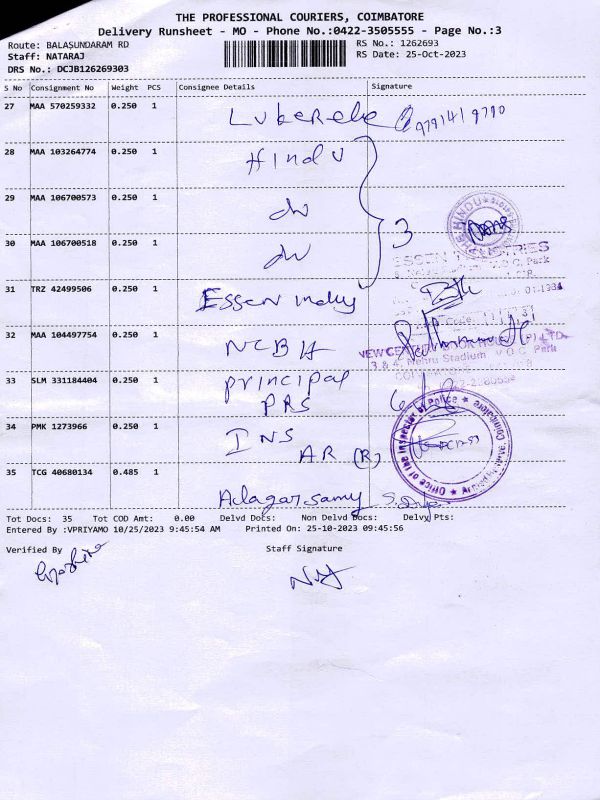 THE PROFESSIONAL COURIERS, COIMBATORE
Delivery Runsheet - MO - Phone No.:0422-3505555 - Page No.:3
Route: BALASUNDARAM RD
RS No.: 1262693
Staff: NATARAJ
RS Date: 25-Oct-2023
DRS No.: DCJB126269303
S No Consignment No Weight PCS Consignee Details Signature
27 MAA 570259332 0.250 1
9791419790
28 MAA 103264774 0.250 1 Hindu
29 MAA 106700573 0.250 1 do
3
THE HINDU
30 MAA 106700518 0.250 1 do
31 TRZ 42499506 0.250 1 Essen
32 MAA 104497754 0.250 1 NCBH
3 & 4, Nehru Stadium V O C. Park
33 SLM 331184404 0.250 1 principal
PRS
34 PMK 1273966 0.250 1 INS
AR (R)
Office of the Inspector of Police
35 TCG 40680134 0.485 1 Alagarsamy
Tot Docs: 35 Tot COD Amt: 0.00 Delvd Docs: Non Delvd Docs: Delvy Pts:
Entered By :VPRIYAMO 10/25/2023 9:45:54 AM Printed On: 25-10-2023 09:45:56
Verified By Staff Signature